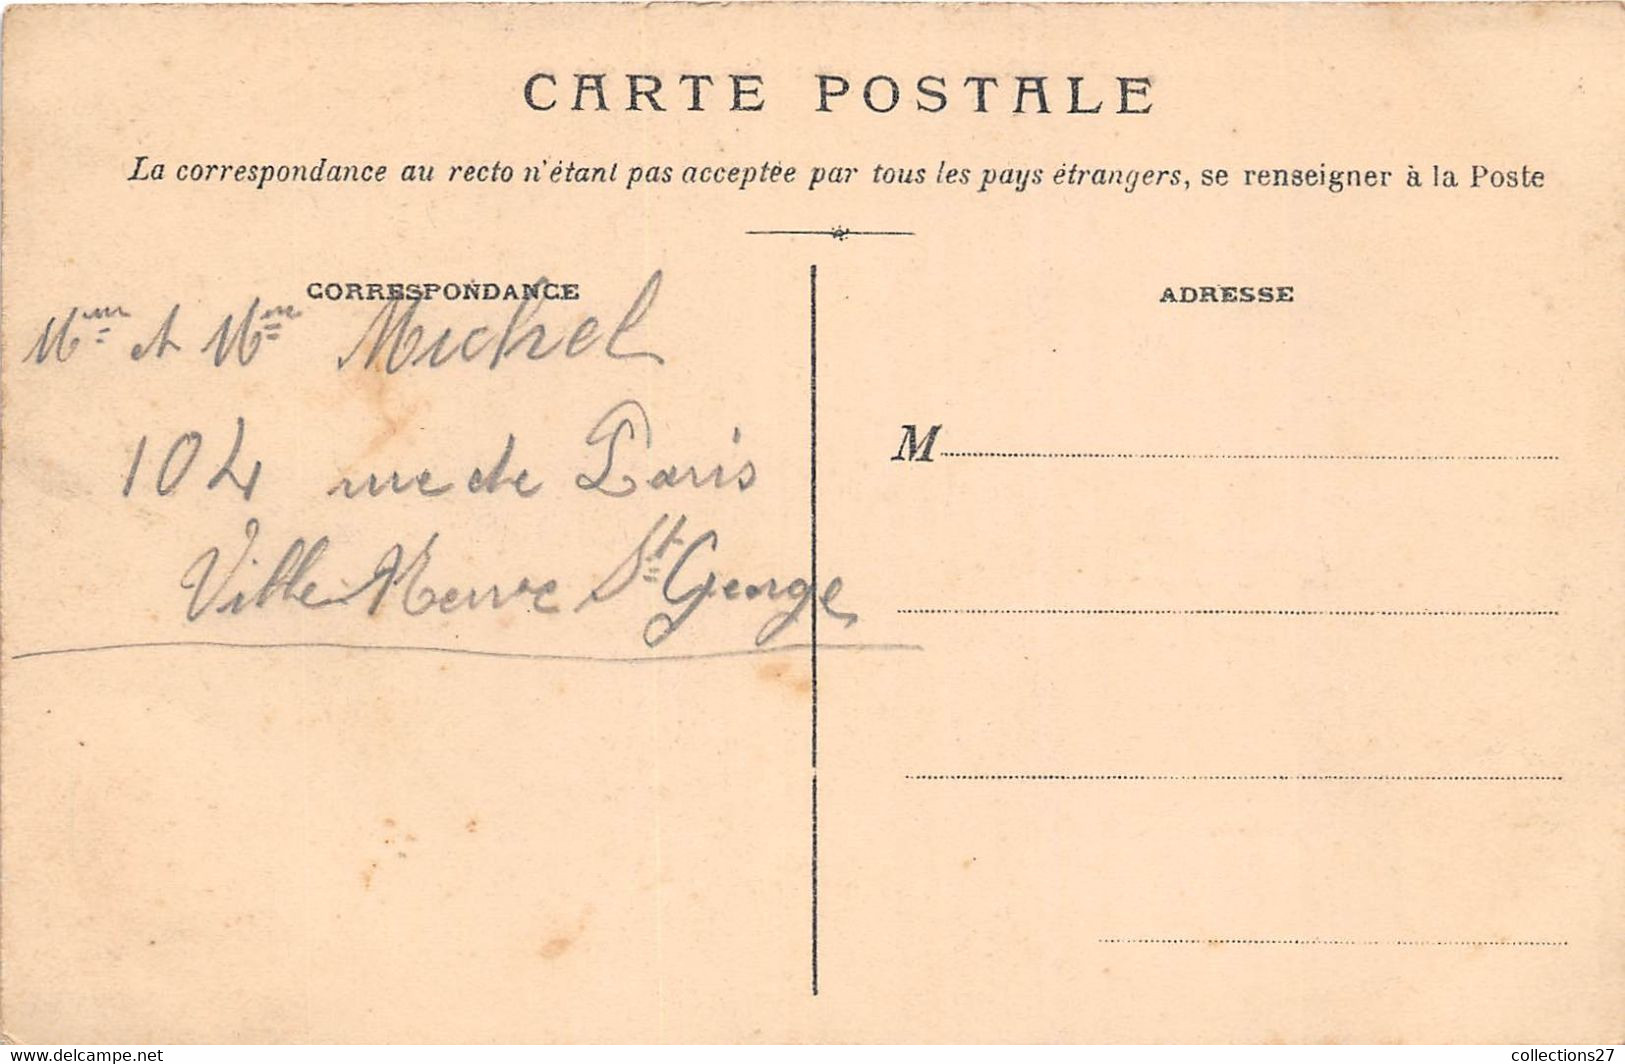 CARTE POSTALE
La correspondance au recto n'étant pas acceptée par tous les pays étrangers, se renseigner à la Poste
CORRESPONDANCE
Mme et Mme Michel
104 rue de Paris
Ville Neuve St George
ADRESSE
M
www.delcampe.net
collections27